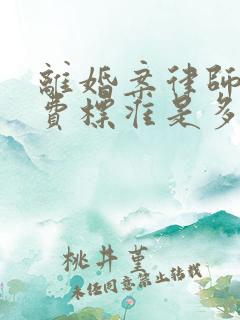 離婚案律師
費標准是多
桃井堇
未经同意禁止转载